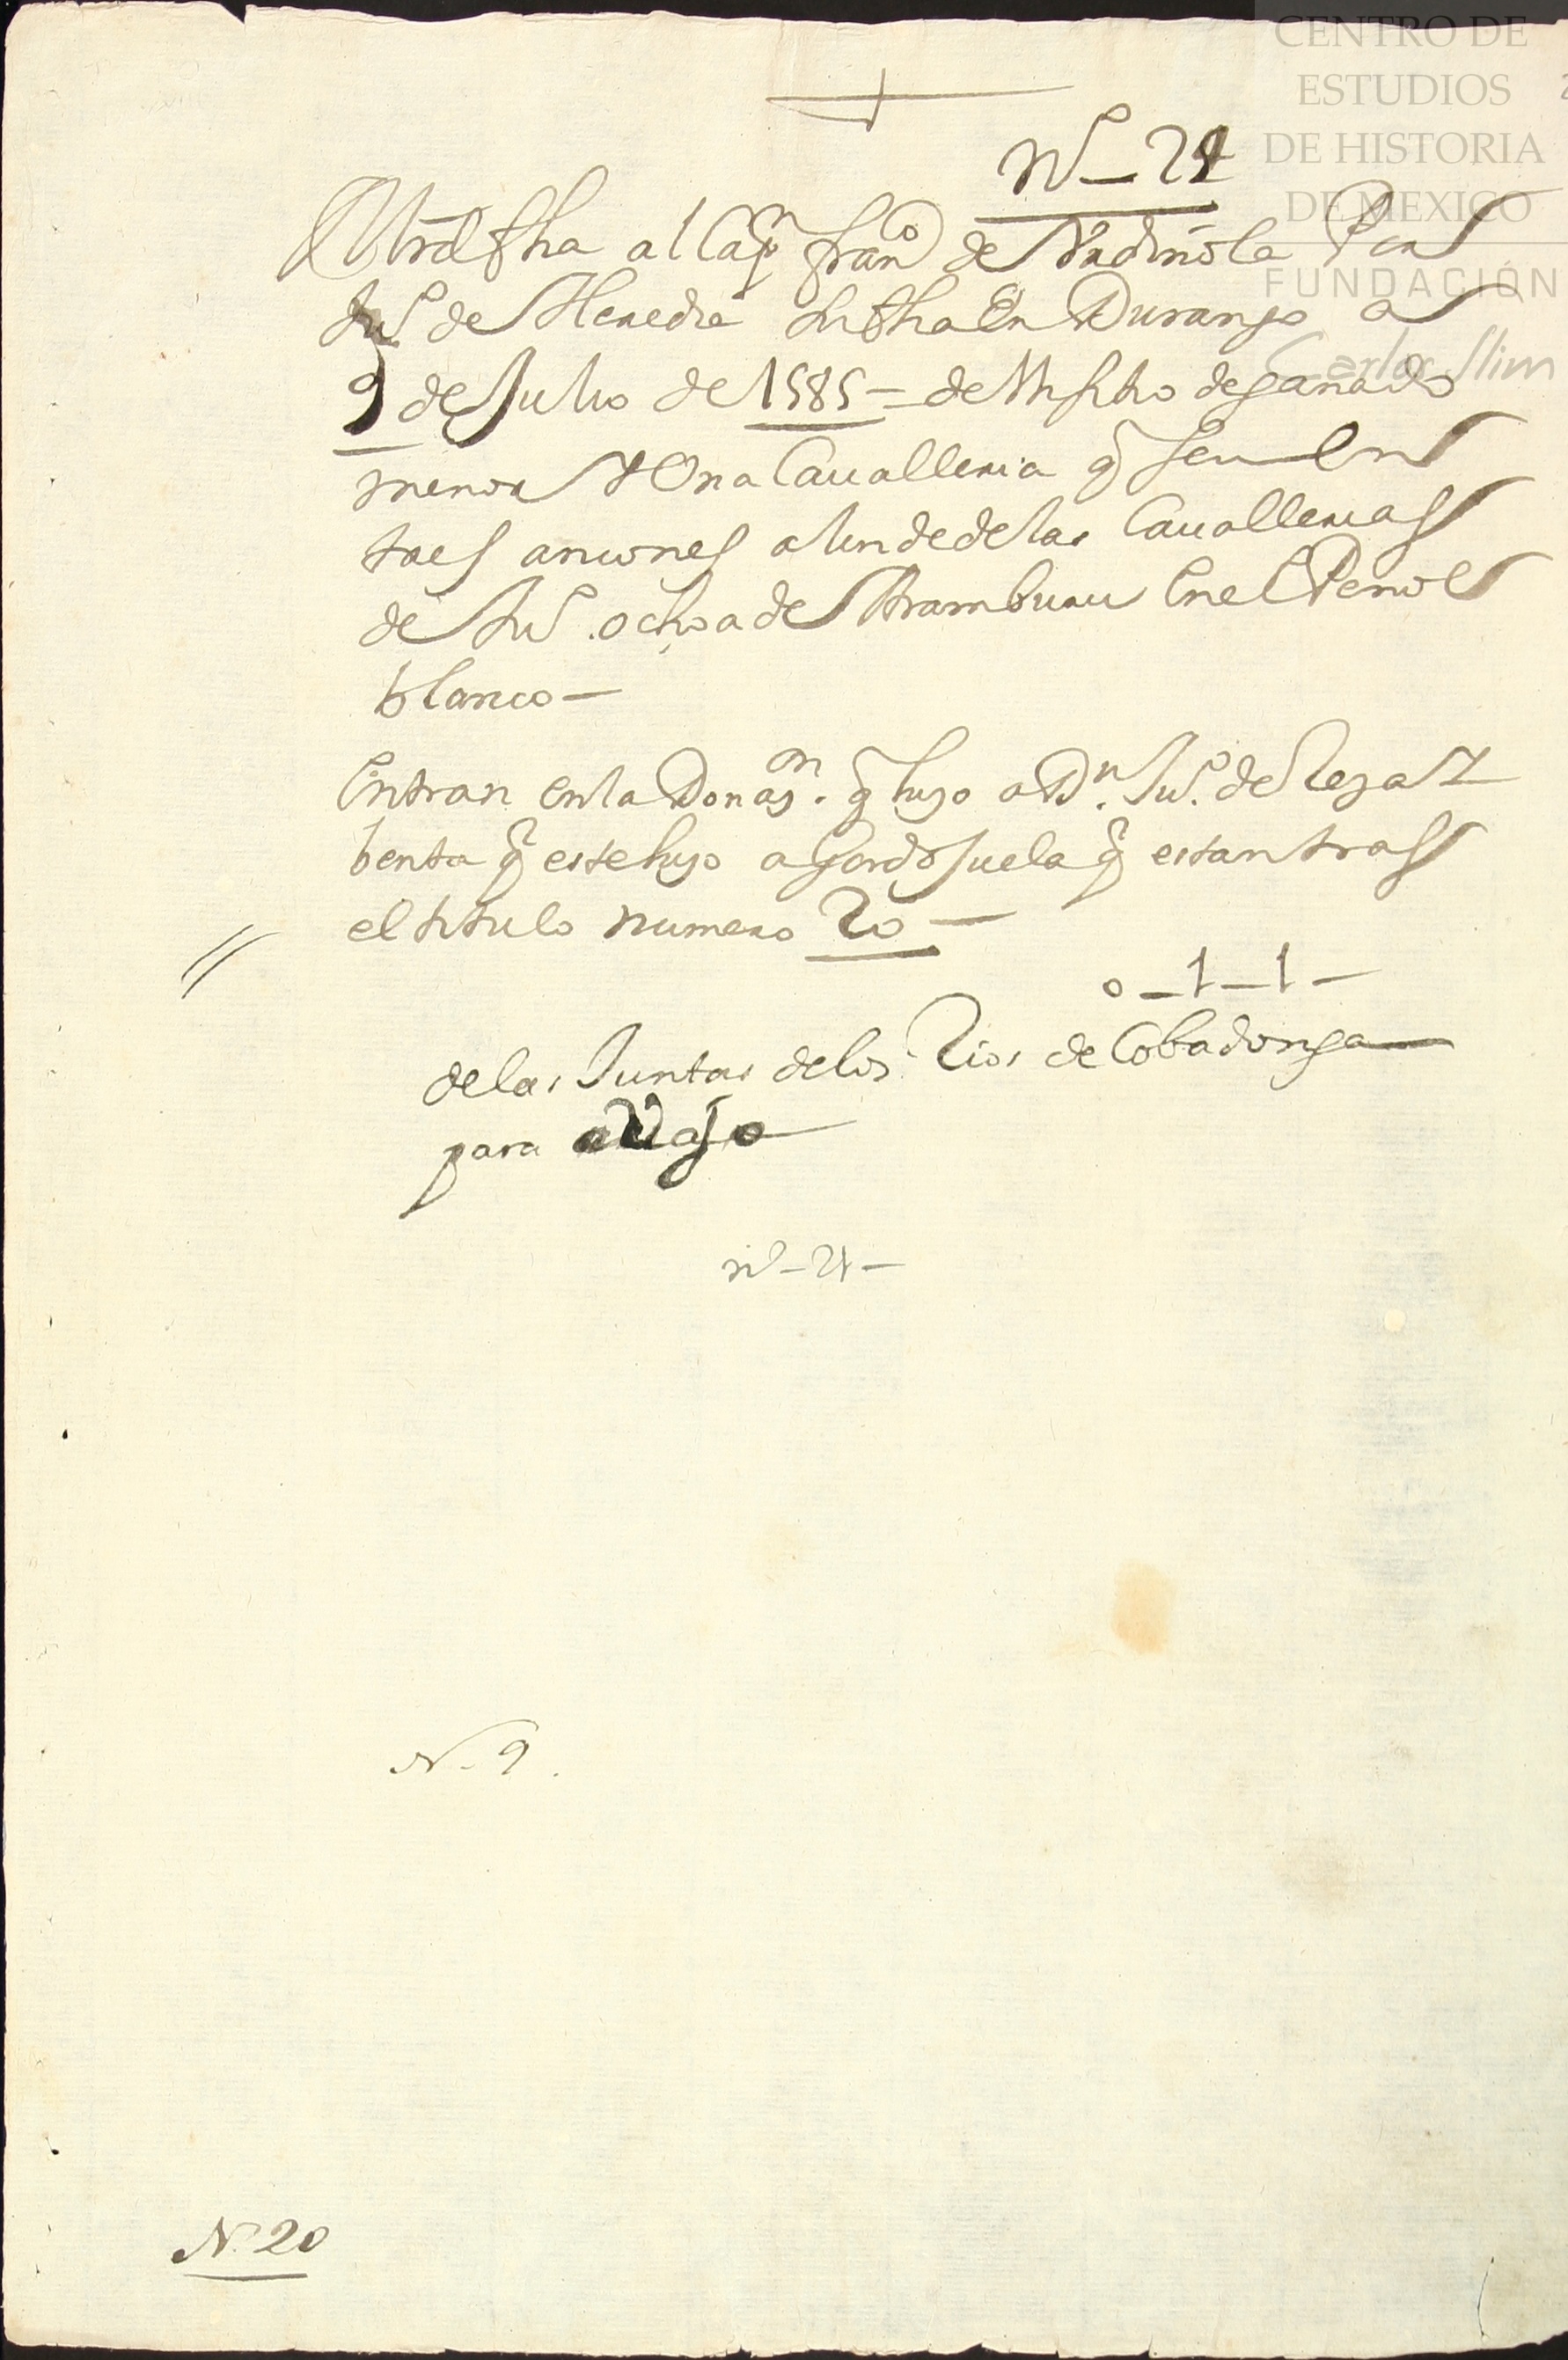 CENTRO DE
ESTUDIOS
DE HISTORIA
DE MEXICO
FUNDACIÓN
Carlos Slim
Nº_21
Mrd ffha al Capn franco de Vrdiñola Por
Juº de Heredia su ffha En Durango a
9 de Julio de 1585 = de Un sitio de ganado
menor Y Una Cauалleria q̃ seu En
tres ancones a linde de las Cauallerias
de Juº ochoa de Arramburu En el Penol
blanco—
Entran en la Donasn. q̃ hiso a Dn. Juº. de Lesa Y
benta q̃ este hiso a Gordojuela q̃ estan tras
el titulo numero 20—
0_1_1_
de las Juntas de los Rios de Cobadonga
para avajo
nº_21_
N. 9.
N. 20